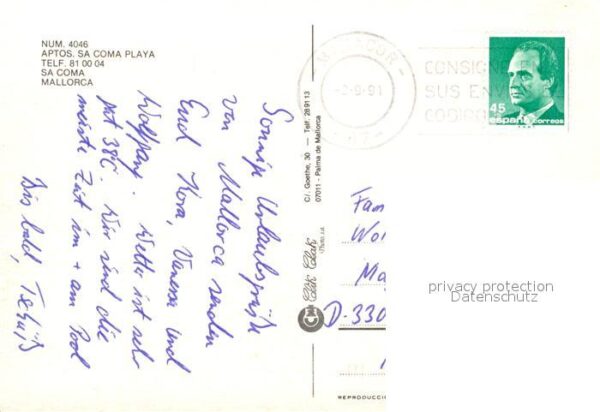 NUM. 4046
APTOS. SA COMA PLAYA
TELF. 81 00 04
SA COMA
MALLORCA
Sonnige Urlaubsgrüße
von Mallorca senden
Euch Kora, Vanessa und
Wolfgang. Wetter ist sehr
gut 38°C. Wir sind die
meiste Zeit im + am Pool
Bis bald, Tschüß
C/. Goethe, 30 — Telf. 289113
07011 - Palma de Mallorca
Click Clack
REPRODUCCI
MANACOR
-2-9-91
CONSIGNE EN
SUS ENV
CODIGO
45
españa correos
Fam
Wo
Ma
D-330
privacy protection
Datenschutz